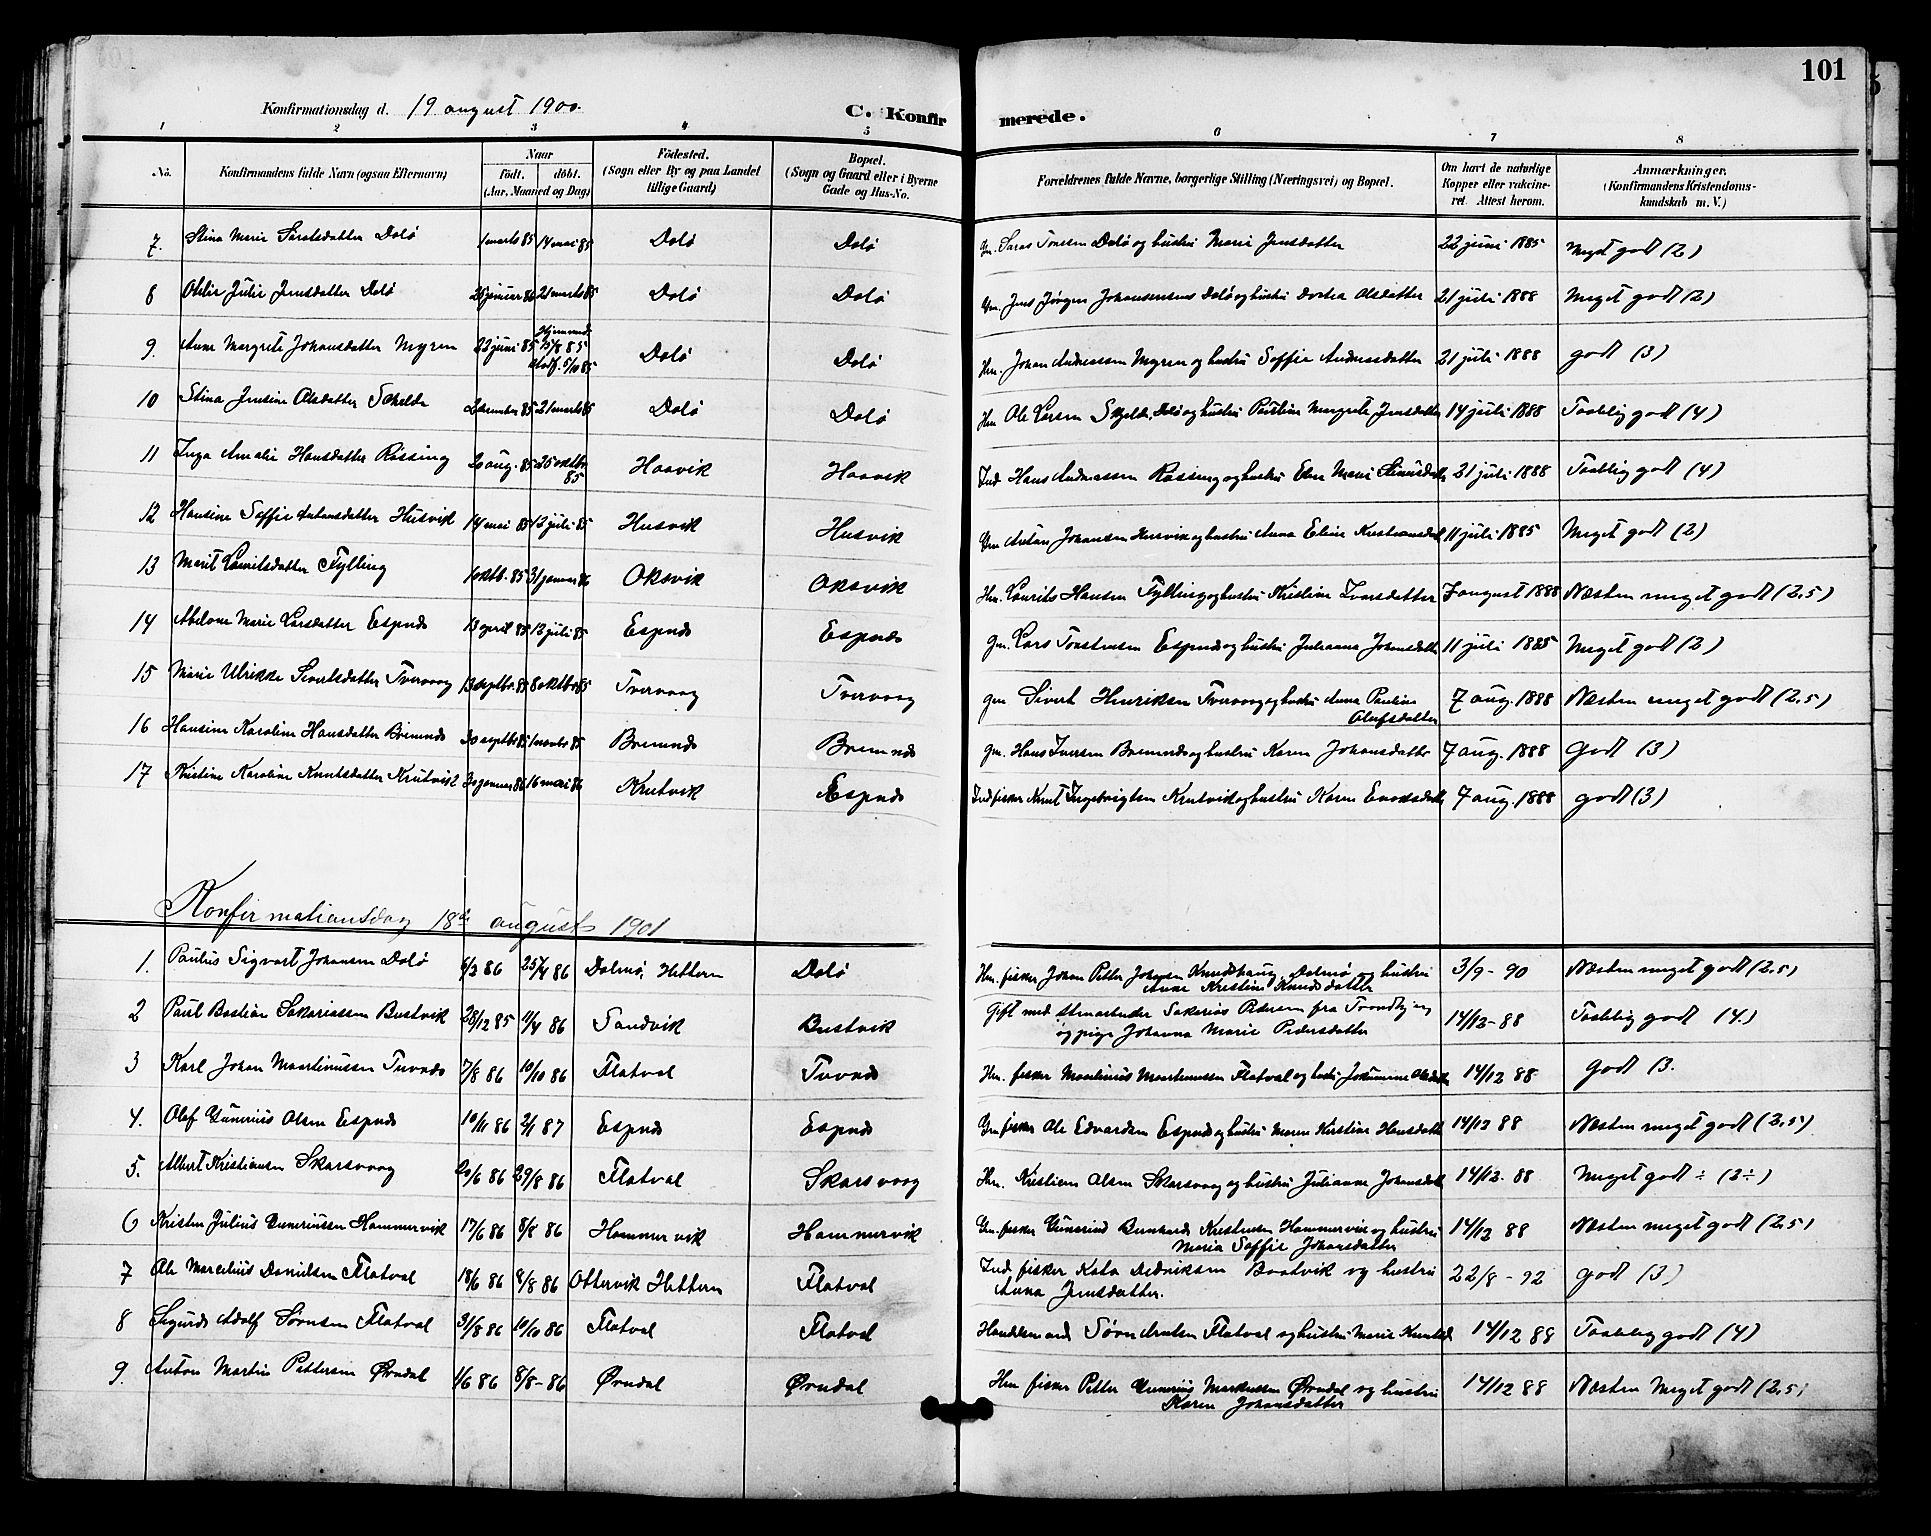 101
Konfirmationsdag d. 19 august 1900.
C. Konfirmerede.
1 2 3 4 5 6 7 8
No.
Konfirmandens fulde Navn (ogsaa Efternavn)
Naar
Født. døbt.
(Aar, Maaned og Dag)
Fødested.
(Sogn eller By og paa Landet
tillige Gaard)
Bopæl.
(Sogn og Gaard eller i Byerne
Gade og Hus-No.
Forældrenes fulde Navne, borgerlige Stilling (Næringsvei) og Bopæl.
Om havt de naturlige
Kopper eller vakcine-
ret. Attest herom.
Anmærkninger.
(Konfirmandens Kristendoms-
kundskab m. V.)
7. Stina Marie Dolø 1 marts 85 14 mai 85 Dolø Dolø Gm. Dolø og hustru Marie Jensdatter 22 juni 1885 Meget godt (2)
8 Julie Jensdatter Dolø 21 marts 85 Dolø Dolø Gm. Jens Jørgen Johansensens Dolø og hustru Olsdatter 21 juli 1888 Meget godt (2)
9. Anne Margrete Johansdatter Myren 22 juni 85 15/8 85 5/10 85 Dolø Dolø Hm. Johan Andreassen Myren og hustru Soffie Andreasdatter 21 juli 1888 godt (3)
10 Stina Jensine Olsdatter 21 marts 85 Dolø Dolø Hm Ole Larsen Dolø og hustru Margrete Jensdatter 14 juli 1888 Taalelig godt (4)
11 Inga Amalie Hansdatter Røssing 20 aug. 85 25 oktbr 85 Haavik Haavik Ind Hans Andreassen Røssing og hustru Marie 21 juli 1888 Taalelig godt (4)
12 Hansine Soffie Antonsdatter Husvik 14 mai 85 12 juli 85 Husvik Husvik Gm Anton Johansen Husvik og hustru Anna Eline 11 juli 1885 Meget godt (2)
13 Marit Lauritsdatter Fylling 1 oktb. 85 31 januar 86 Oksvik Oksvik Hm. Laurits Hansen Fylling og hustru Kristine Ivarsdatter 7 august 1888 Næsten meget godt (2,5)
14 Abelone Marie Larsdatter Espnes 13 april 85 12 juli 85 Espnes Espnes gm. Lars Espnes og hustru Julianna Johansdatter 11 juli 1885 Meget godt (2)
15 Marie Ulrikke Sivertsdatter Tvervaag 13 septbr. 85 8 oktbr 85 Tvervaag Tvervaag gm Sivert Henriksen Tvervaag og hustru Anna Pauline
Olufsdatter 7 aug. 1888 Næsten meget godt (2,5)
16 Hansine Karoline Hansdatter Bremnes 30 septbr 85 85 Bremnes Bremnes gm. Hans Iversen Bremnes og hustru Karen Johansdatter 7 aug. 1888 godt (3)
17 Kristine Karoline Knutsdatter Knutvik 30 januar 86 16 mai 86 Knutvik Espnes Ind fisker Knut Ingebrigtsen Knutvik og hustru Karen 7 aug. 1888 godt (3)
Konfirmationsdag 18de august 1901
1. Paulus Sigvart Johansen Dolø 6/3 86 25/4 86 Dolmø, Hitteren Dolø Hm. fisker Johan Petter Johnsen Knudshaug, Dolmø og hustru
Anne Kristine Knudsdatter 3/9 - 90 Næsten meget godt (2,5)
2 Paul Bastian Sakariassen Bustvik 28/12 85 11/4 86 Sandvik Bustvik Gift med Stenarbeider Sakarias Pedersen fra Trondhjem
og pige Johanna Marie Pedersdatter 14/12 - 88 Taalelig godt (4.)
3 Karl Johan Martinussen Tuvnes 7/8 86 10/10 86 Flatval Tuvnes Hm. fisker Martinus Martinussen Flatval og hustru 14/12 88 godt (3.
4. Olaf Gunerius Olsen Espnes 10/11 86 2/1 87 Espnes Espnes Gm. fisker Ole Edvardsen Espnes og hustru Maren Kirstine Hansdatter 14/12 88 Næsten meget godt (2,5)
5. Albert Kristiansen Skarsvaag 20/6 86 29/8 86 Flatval Skarsvaag Hm. Kristian Olsen Skarsvaag og hustru Julianna Johansdatter 14/12 - 88 Meget godt ÷ (2÷)
6 Kristen Julius Guneriussen Hammervik 17/6 86 8/8 86 Hammervik Hammervik Gm. fisker Gunerius Bernhard Kristensen Hammervik og hustru
Maria Soffie Johansdatter 14/12 88 Næsten meget godt (2,5)
7 Ole Marcelius Danielsen Flatval 18/6 86 8/8 86 Ottervik Hitteren Flatval Ind fisker og hustru
Anna Jensdatter. 22/8 - 92 godt (3)
8 Sigurd Adolf Sørensen Flatval 31/8 86 10/10 86 Flatval Flatval Søren Arntsen Flatval og hustru Marie 14/12 88 Taalelig godt (4)
9. Anton Martin Pettersen Ørndal 1/6 86 8/8 - 86 Ørndal Ørndal Hm fisker Petter Gunerius Markussen Ørndal og hustru
Karen Johansdatter 14/12 88 Næsten Meget godt (2,5)